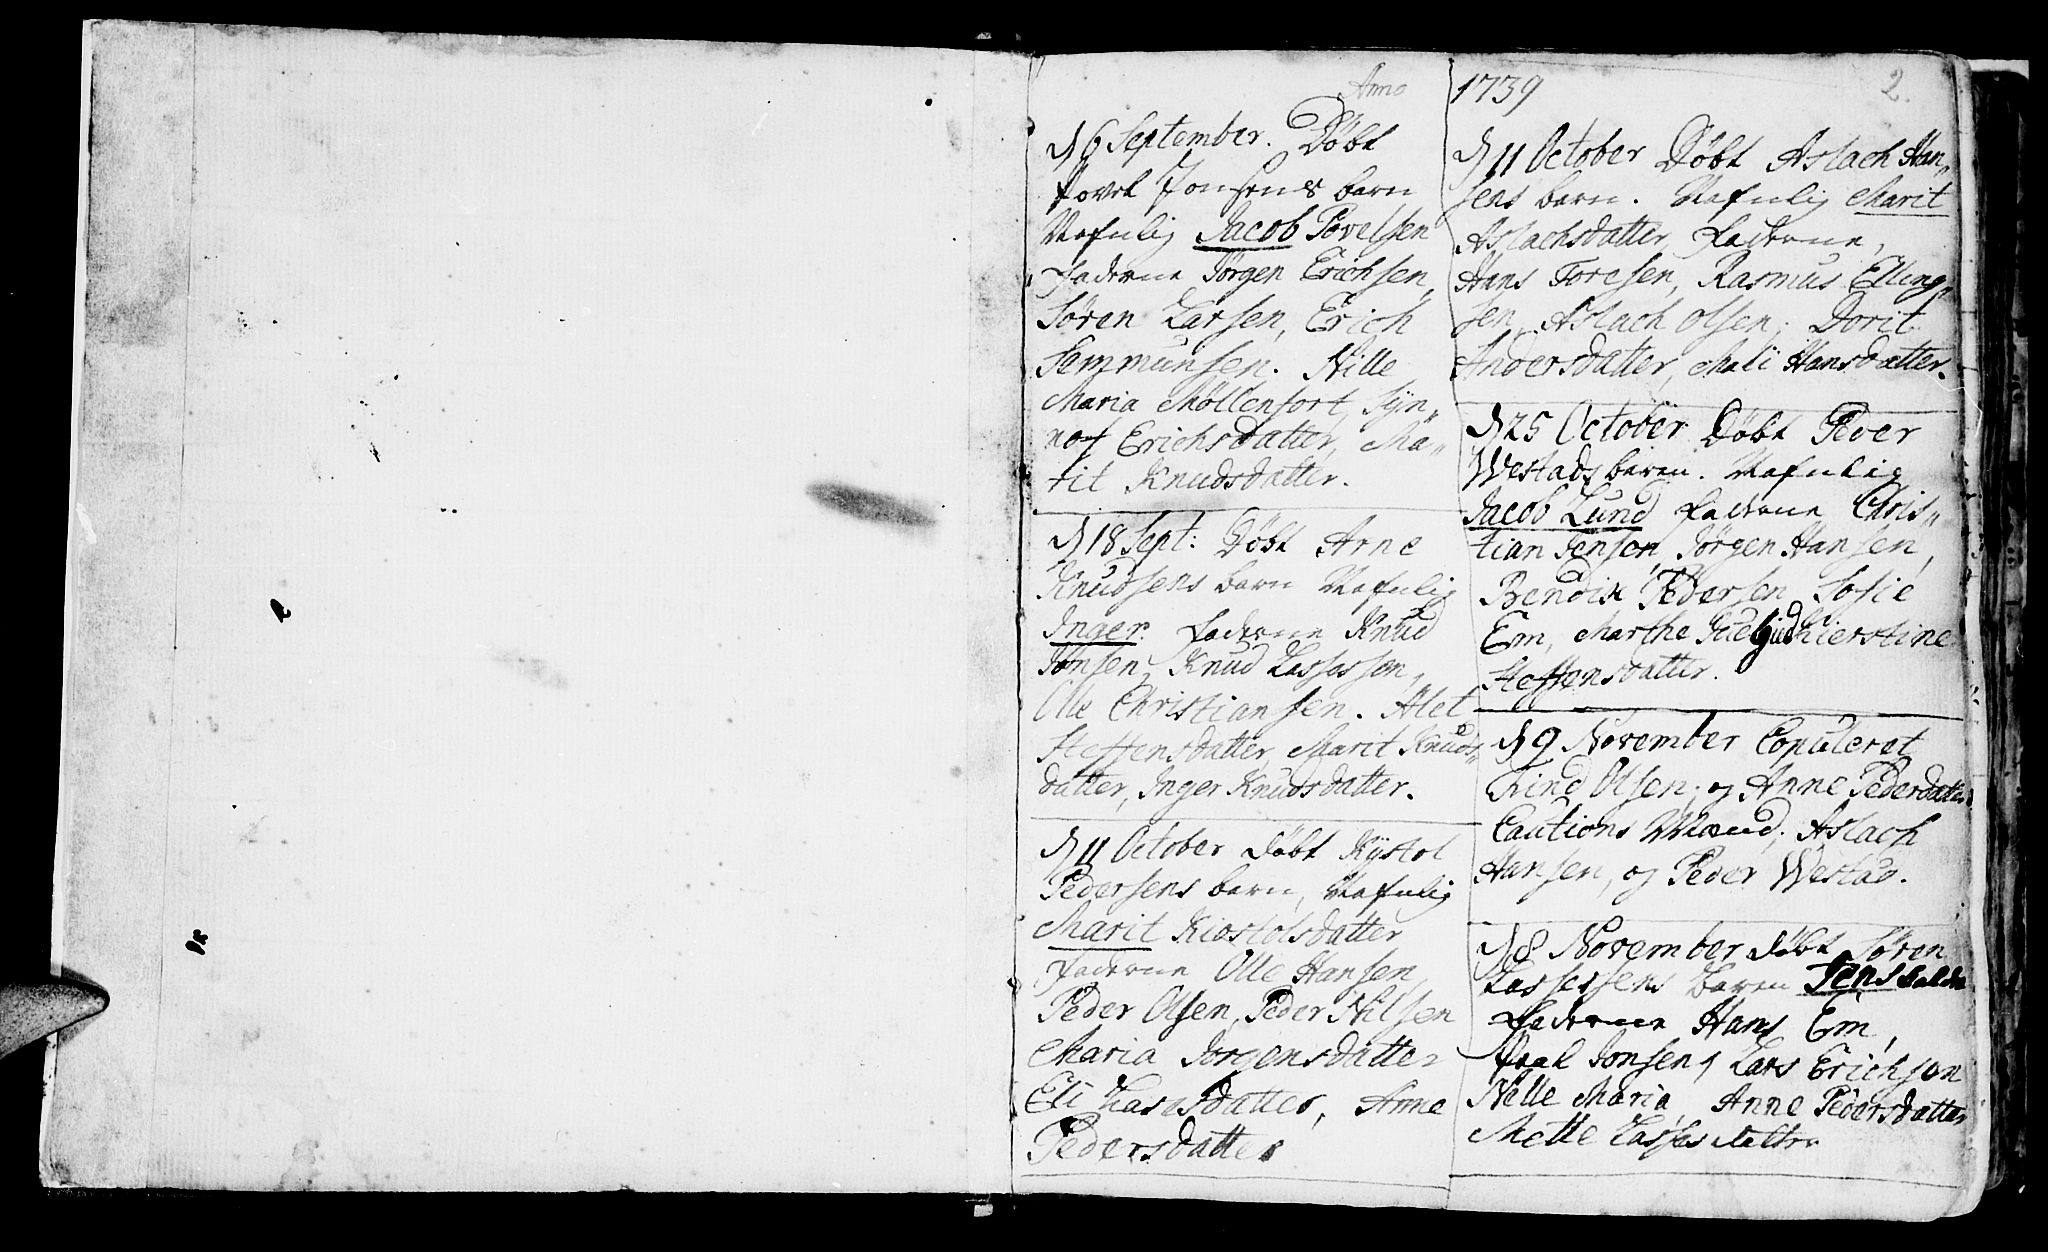 Anno 1739
2.
D 6 September. Döbt
Povel Jonsens barn
Nafnlig Jacob Povelsen
Faderne Jörgen Erichsen,
Sören Larsen, Erich
Sammunsen. Nille
Maria Möllenfort, Syn„
nof Erichsdatter, Ma„
rit Knudsdatter.
D 18 Sept: Döbt Arne
Knudsens barn Nafnlig
Inger. Faderne Knud
Jonsen, Knud Lassessen,
Olle Christiansen. Alet
Steffensdatter, Marit Knuds„
datter, Inger Knudsdatter.
D 11 October Döbt Kystol
Pedersens barn, Nafnlig
Marit Kiostolsdatter
Faderne Olle Hansen,
Peder Olsen, Peder Nilsen
Maria Jorgensdatter
Eli Lassesdatter, Anne
Pedersdatter
D 11 October Döbt Aslach Han„
sens barn. Nafnlig Marit
Aslachsdatter, Faderne,
Hans Toresen, Rasmus Elling„
sen, Aslach Olsen, Dorit
Andersdatter, Mali Hansdatter.
D 25 October Döbt Peder
Westads barn. Nafnlig
Jacob Lund Faderne Chris„
tian Jensen, Jörgen Hansen,
Bendix Pedersen Sofie
Em, Marthe Kierstine
Steffensdatter.
D 9 November Copuleret
Trind Olsen, og Anne Pedersdatter
Cautions Mænd, Aslach
Hansen, og Peder Westad.
D 8 November Döbt Sören
Lassessens barn Jens
Faderne Hans Em,
Povel Jonsen, Lars Erichsen
Nille Maria, Anne Pedersdatter
Mette Lassesdatter